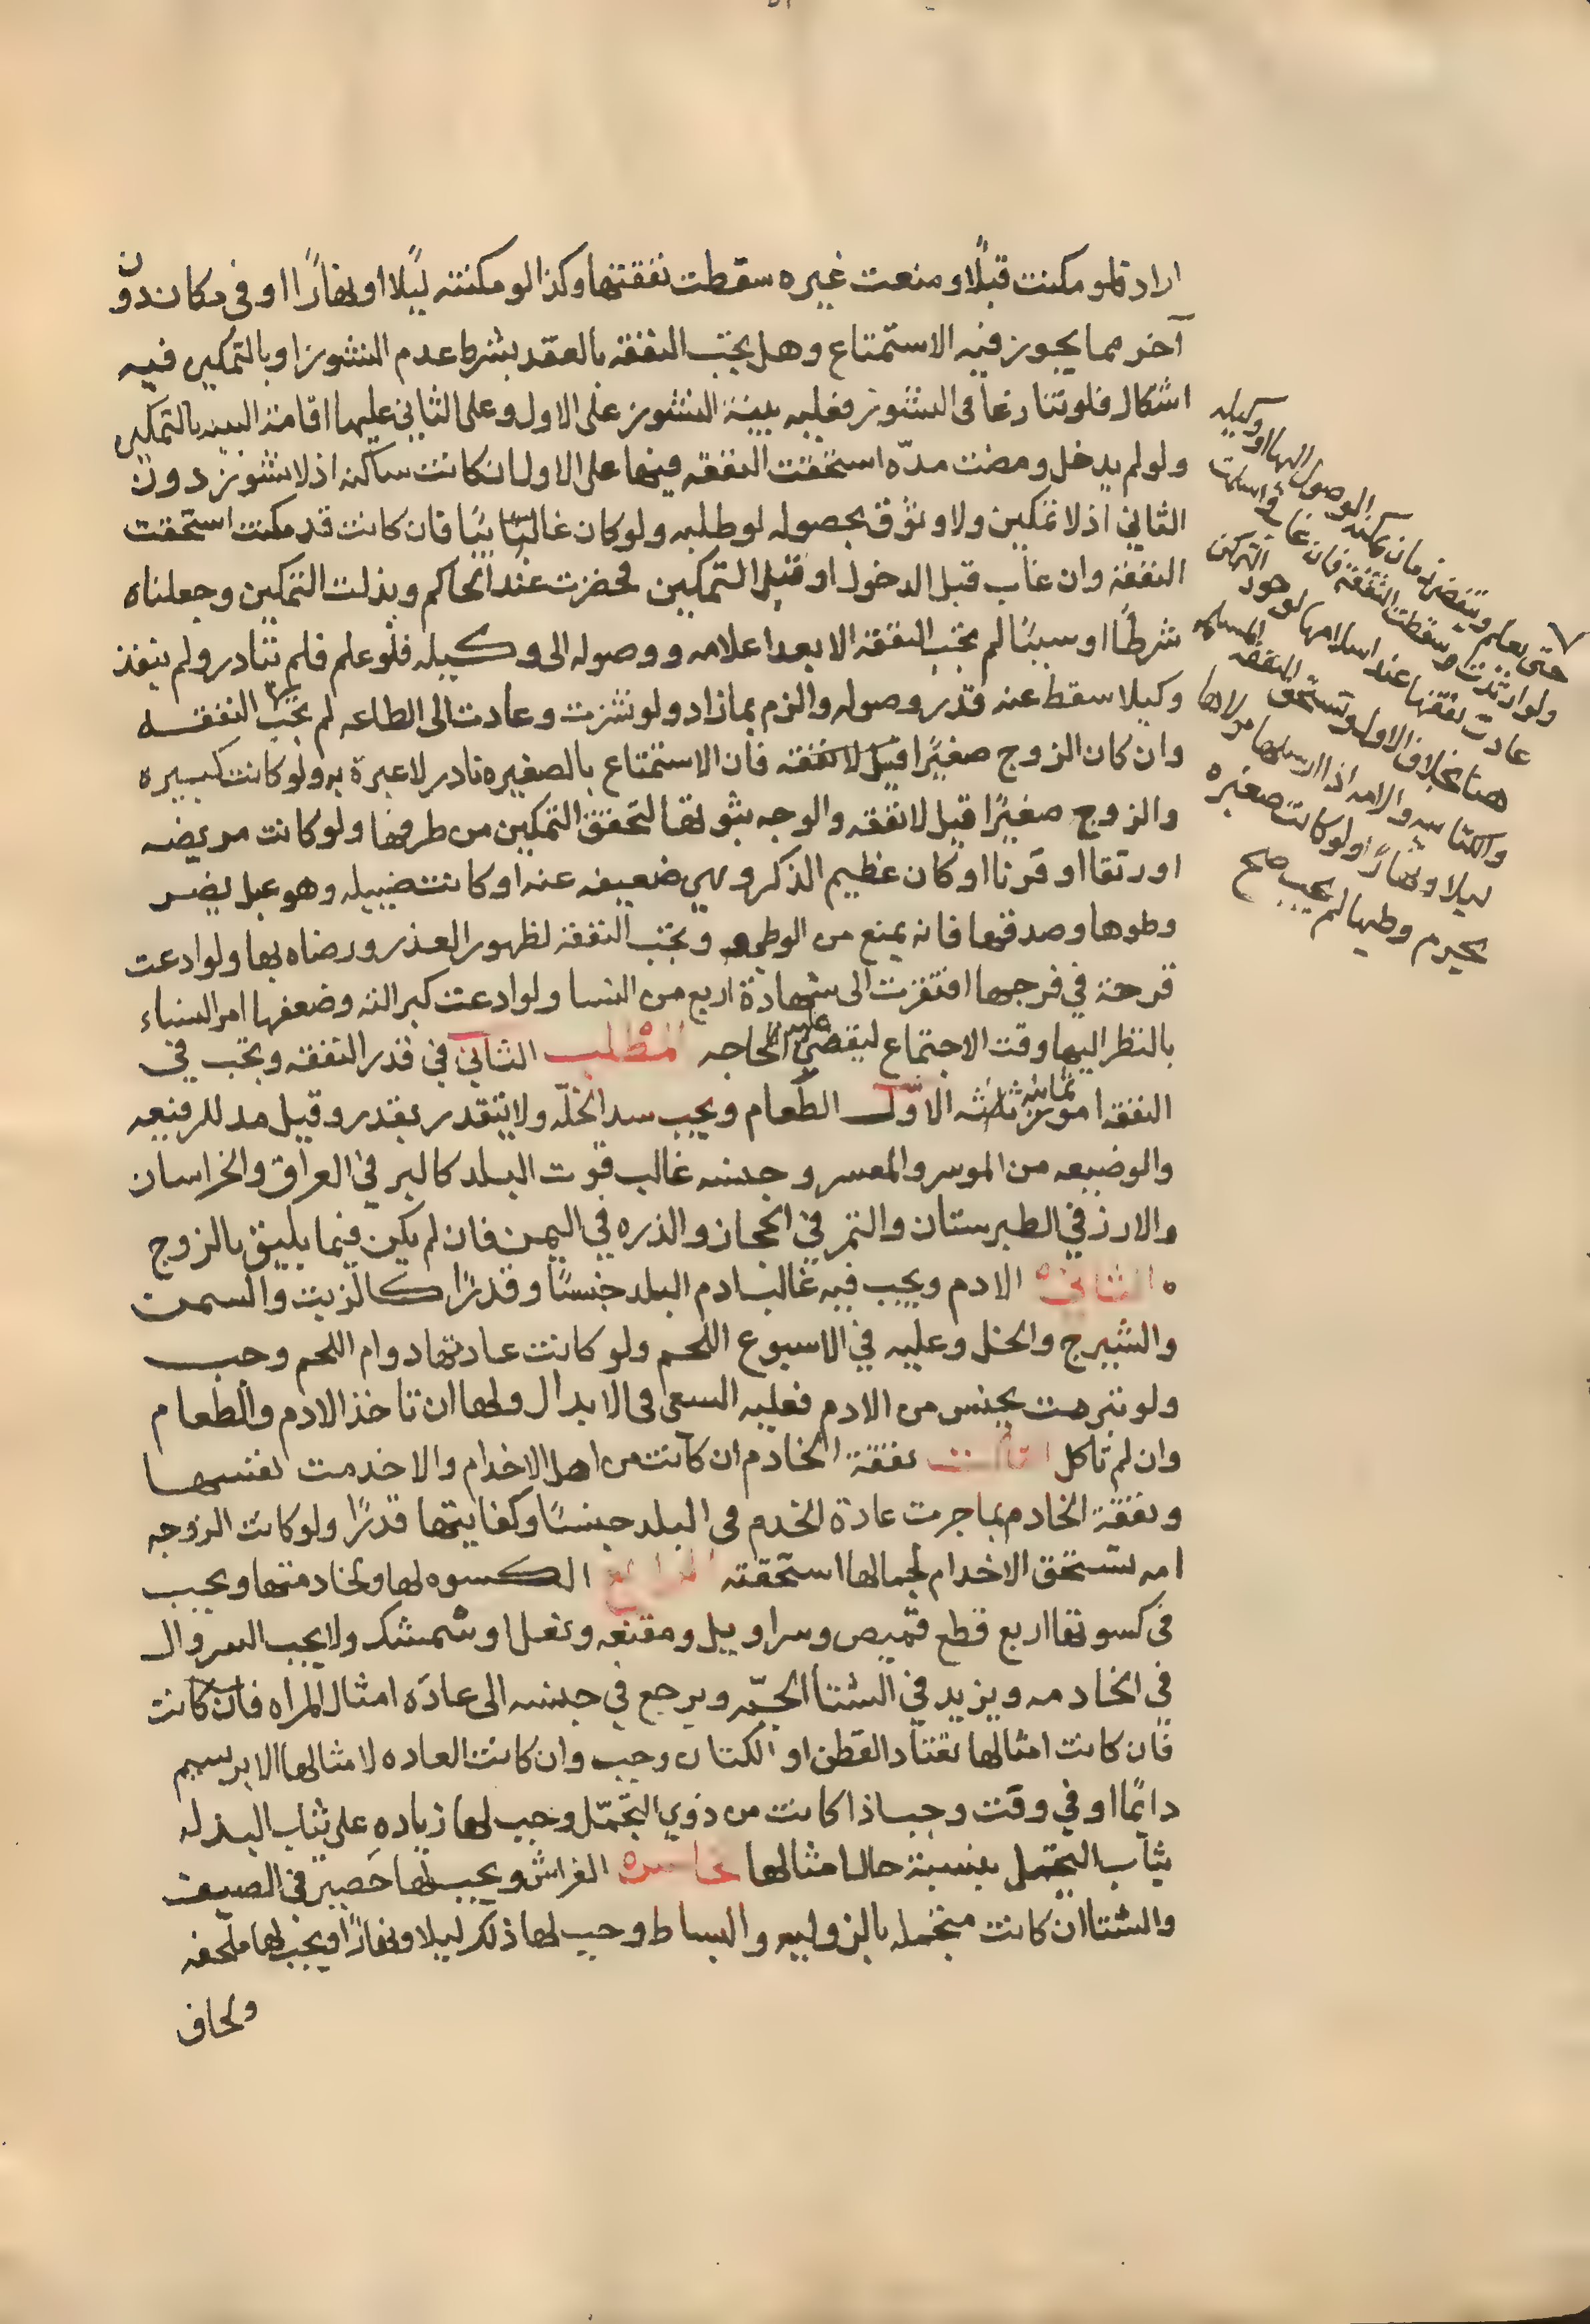 اراد فلو مكنت قبلًا ومنعت غيره سقطت نفقتها وكذا لو مكنته ليلًا او نهارًا او في مكان دون
آخر مما يجوز فيه الاستمتاع وهل يجب النفقه بالعقد بشرط عدم النشوز او بالتمكين فيه
اشكال فلو تنازعا في النشوز فعليه بينة النشوز على الاول وعلى الثاني عليها اقامة البينه بالتمكين
ولو لم يدخل ومضت مدّه استحقت النفقه فيها على الاول ان كانت ساكنه اذ لا نشوز دون
الثاني اذ لا تمكين ولا وثوق بحصوله لو طلبه ولو كان غائبًا فان كانت قد مكنت استحقت
النفقة وان غاب قبل الدخول او قبل التمكين فحضرت عند الحاكم وبذلت التمكين وجعلناه
شرطًا او سببًا لم تجب النفقة الا بعد اعلامه ووصوله الى وكيله فلو علم فلم يبادر ولم ينفذ
وكيلا سقط عنه قدر وصوله والزم بما زاد ولو نشزت وعادت الى الطاعه لم تجب النفقه
وان كان الزوج صغيًرا قيل لا نفقه فان الاستمتاع بالصغيره نادر لا عبرة به ولو كانت كبيره
والزوج صغيرًا قيل لا نفقه والوجه ثبوتها لتحقق التمكين من طرفها ولو كانت مريضه
او رتقا او قرنا او كان عظيم الذكر وهي ضعيفه عنه او كانت ضئيله وهو عبل يضر
وطوها وصدقها فانه يمنع من الوطي وتجب النفقة لظهور العذر ورضاه بها ولو ادعت
قرحة في فرجها افتقرت الى شهادة اربع من النسا ولو ادعت كبر الته وضعفها امر النساء
بالنظر اليها وقت الاجتماع ليقضي عليه الحاجه المطلب الثاني في قدر النفقه ويجب في
النفقه امور ثمانية ثلاثه الاوّل الطعام ويجب سد الخلّه ولا يتقدر بقدر وقيل مد للرفيعه
والوضيعه من الموسر والمعسر وجنسه غالب قوت البلد كالبر في العراق والخراسان
والارز في الطبرستان والتمر في الحجاز والذره في اليمن فان لم يكن فيما يليق بالزوج
الثاني الادم ويجب فيه غالب ادم البلد جنسًا وقدرًا كالزيت والسمن
والشيرج والخل وعليه في الاسبوع اللحم ولو كانت عادتها دوام اللحم وجب
ولو تبرمت بجنس من الادم فعليه السعى في الابدال ولها ان تاخذ الادم والطعام
وان لم تاكل الثالث نفقة الخادم ان كانت من اهل الاخدام والا خدمت نفسها
ونفقة الخادم بما جرت عادة الخدم في البلد جنسًا وكفايتها قدرًا ولو كانت الزوجه
امه تستحق الاخدام لجمالها استحقته الرابع الكسوه لها ولخادمتها ويجب
في كسوتها اربع قطع قميص وسراويل ومقنعه ونعل او شمشك ولا يجب السروال
في الخادمه ويزيد في الشتا الجبّه ويرجع في جنسه الى عادَه امثال المراه فان كانت
فان كانت امثالها تعتاد القطن او الكتان وجب وان كانت العاده لامثالها الابرسيم
دائمًا او في وقت وجب اذا كانت من ذوي التجمّل وجب لها زياده على ثياب البذله
ثياب التجمل بنسبة حال امثالها خامسه الفراش ويجب لها حَصير في الصيف
والشتا ان كانت متجمله بالزوليه والبساط وجب لها ذلك ليلا ونهارًا ويجب لها ملحفه
ولحاف
حتى يعلم وينقضي زمان يمكنه الوصول اليها او وكيله
ولو ارتدت وسقطت النفقة فان غاب فاسلمت
عادت نفقتها عند اسلامها لوجود التمكن
هنا بخلاف الاول وتستحق النفقه المسلمه
والكتابيه والامه اذا ارسلها مولاها
ليلا ونهارًا ولو كانت صغيره
يحرم وطيها لم يجب صح